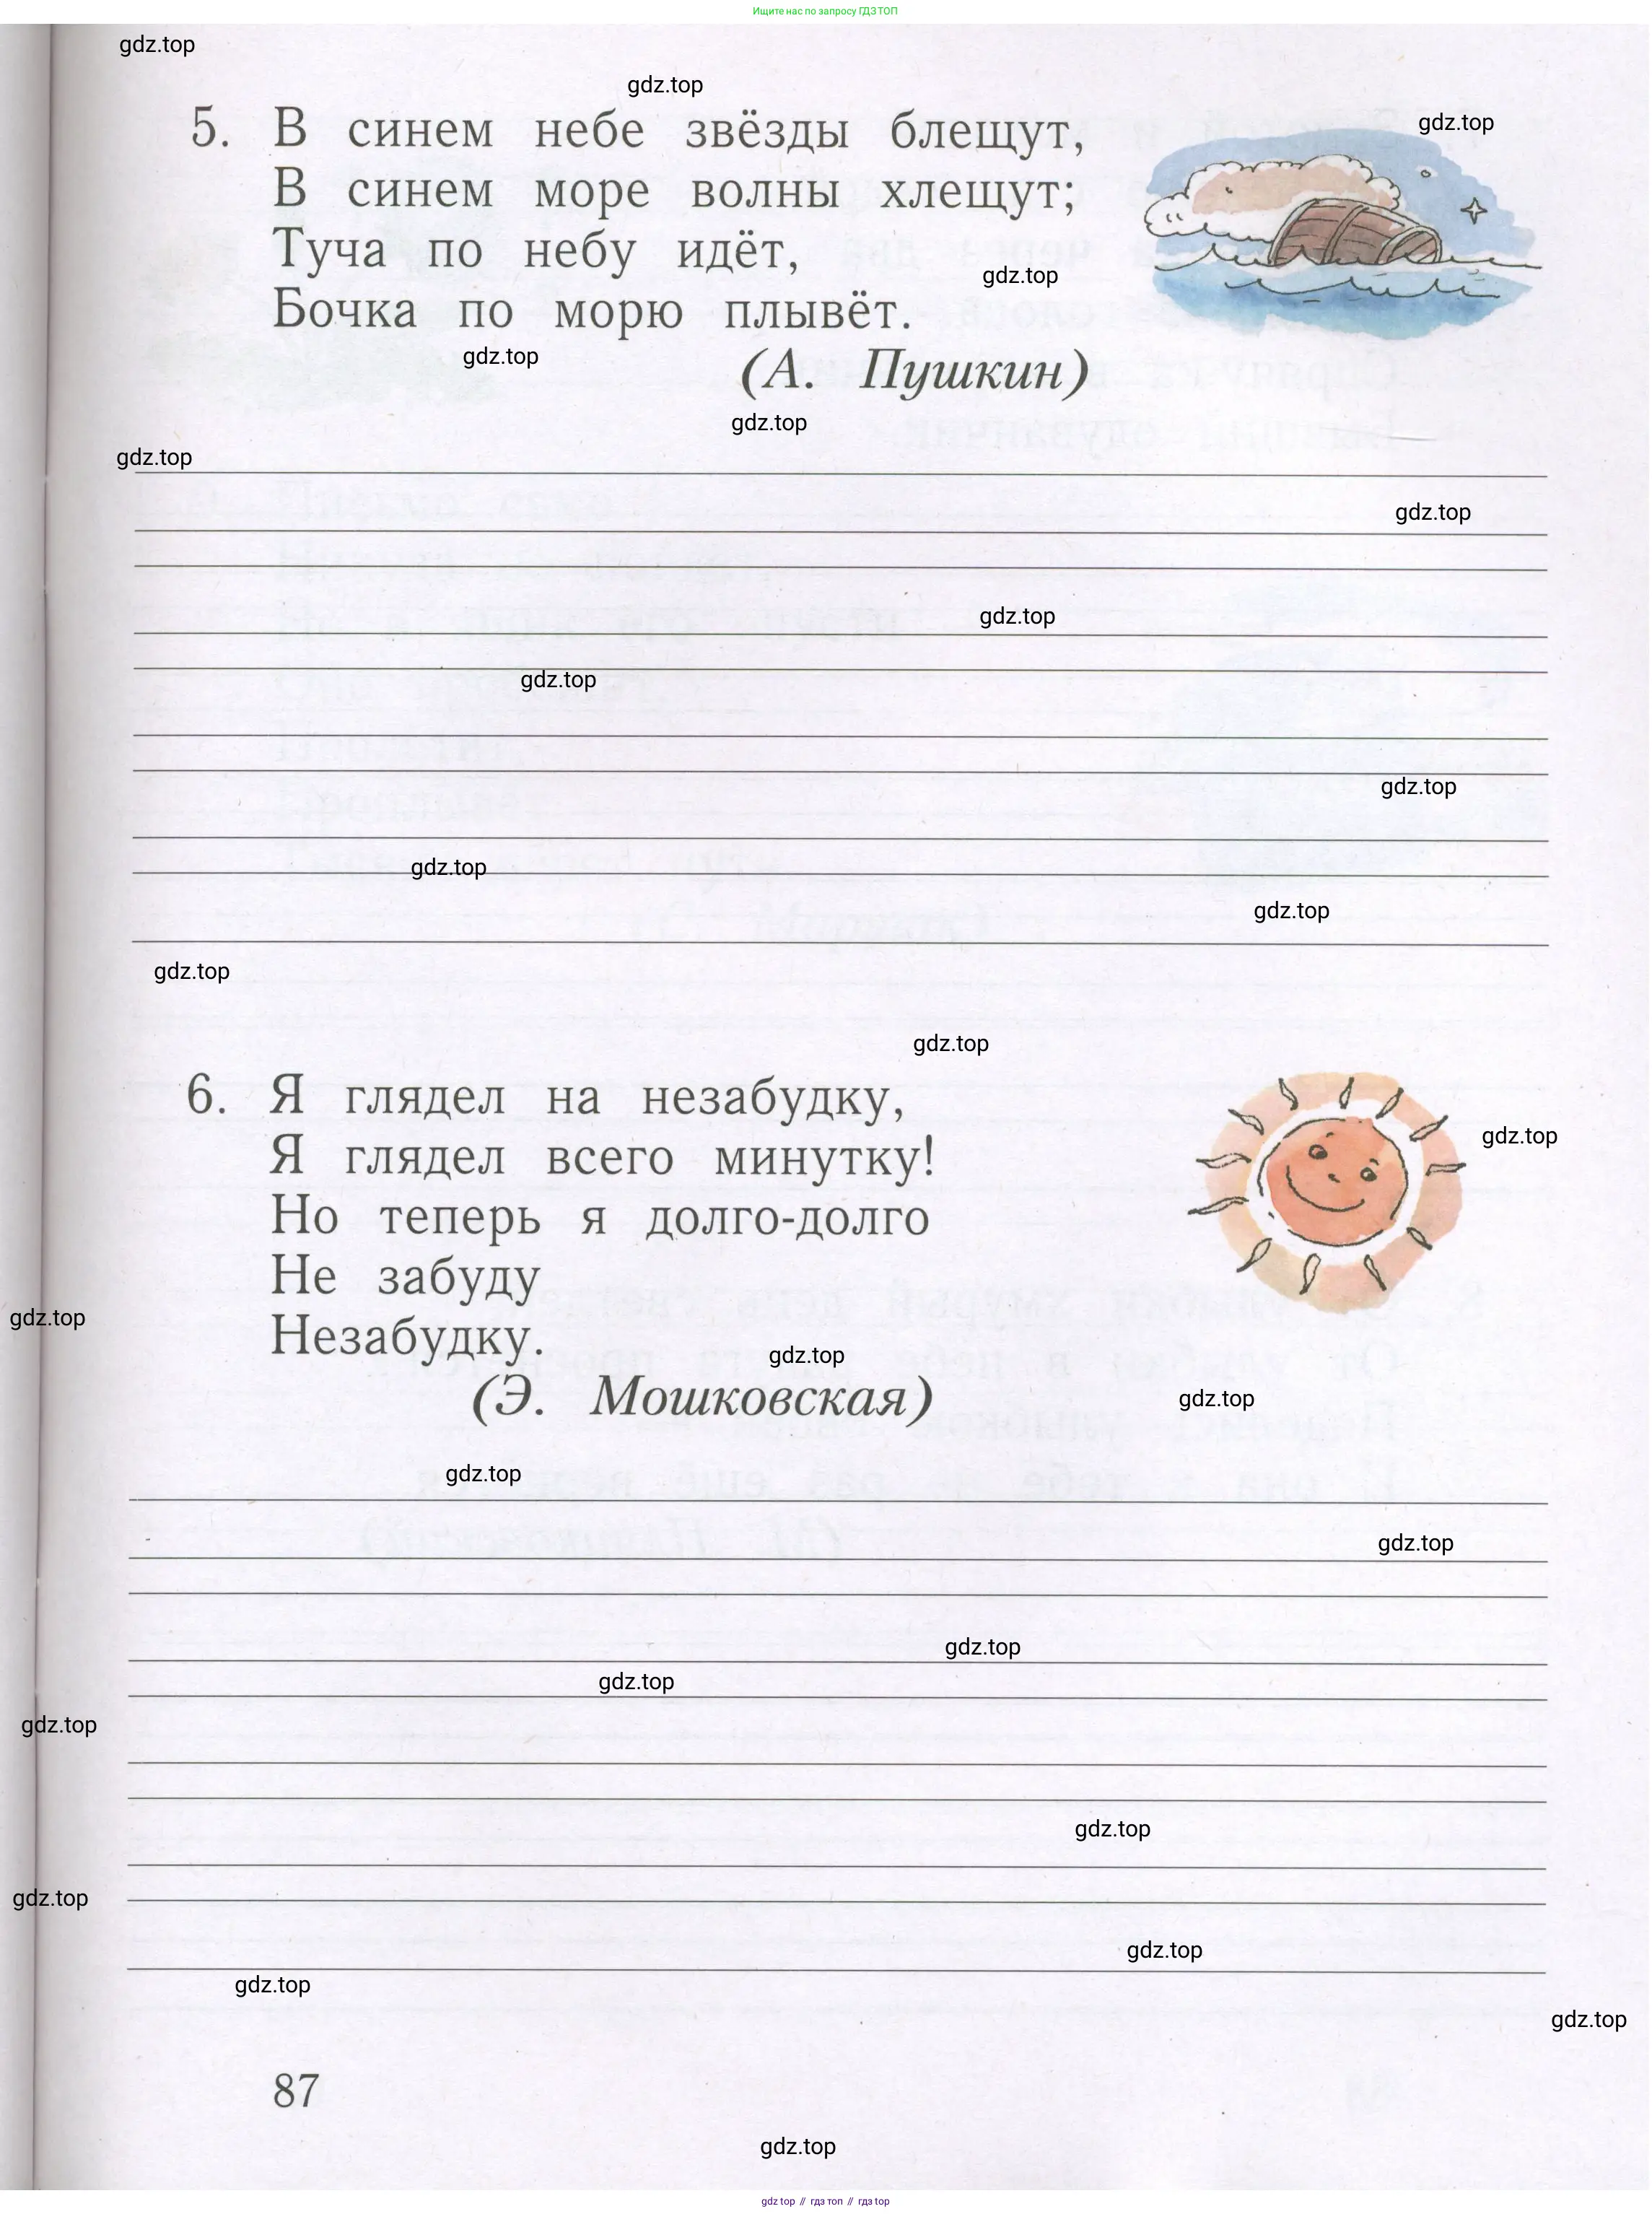 Ищите нас по запросу ГДЗ ТОП
gdz.top
gdz.top
gdz.top
5. В синем небе звёзды блещут,
В синем море волны хлещут;
Туча по небу идёт,
gdz.top
Бочка по морю плывёт.
gdz.top
(А. Пушкин)
gdz.top
gdz.top
gdz.top
gdz.top
gdz.top
gdz.top
gdz.top
gdz.top
gdz.top
gdz.top
6. Я глядел на незабудку,
gdz.top
Я глядел всего минутку!
Но теперь я долго-долго
Не забуду
gdz.top
Незабудку.
gdz.top
(Э. Мошковская)
gdz.top
gdz.top
gdz.top
gdz.top
gdz.top
gdz.top
gdz.top
gdz.top
gdz.top
gdz.top
gdz.top
87
gdz.top
gdz top // гдз топ // гдз top